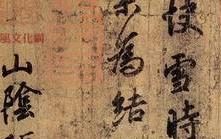 快雪時
果為結
山陰
風文化網